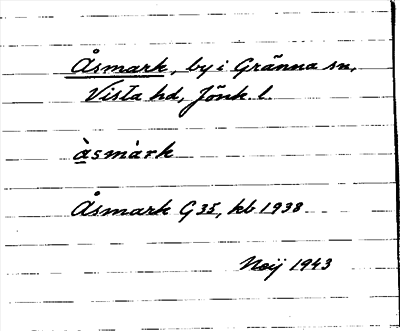 Åsmark, by i Gränna sn,
Vista hd, Jönk. l.
àsmàrk
Åsmark G 35, kb 1938
Neij 1943